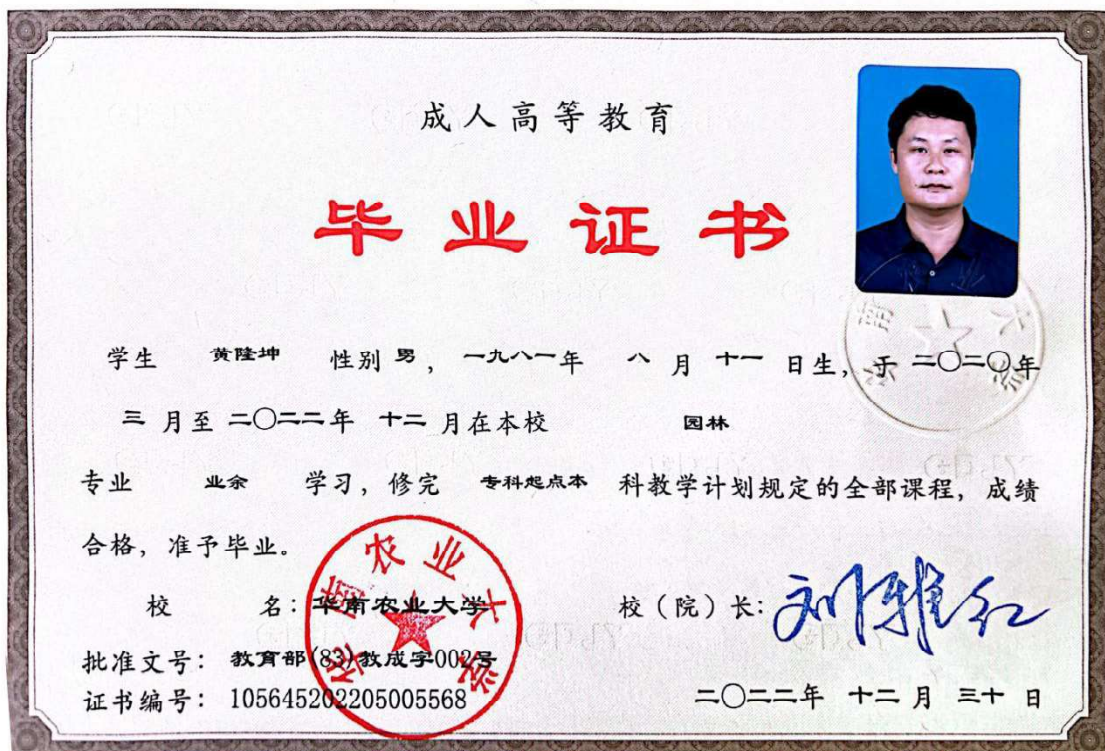 成人高等教育
毕业证书
学生 黄隆坤 性别 男, 一九八一年 八 月 十一 日生, 于 二〇二〇年
三 月至 二〇二二年 十二 月在本校 园林
专业 业余 学习, 修完 专科起点本 科教学计划规定的全部课程, 成绩
合格, 准予毕业。
校 名: 华南农业大学 校（院）长: 刘雅红
批准文号: 教育部(83)教成字002号
证书编号: 105645202205005568 二〇二二年 十二 月 三十 日
华南农业大学